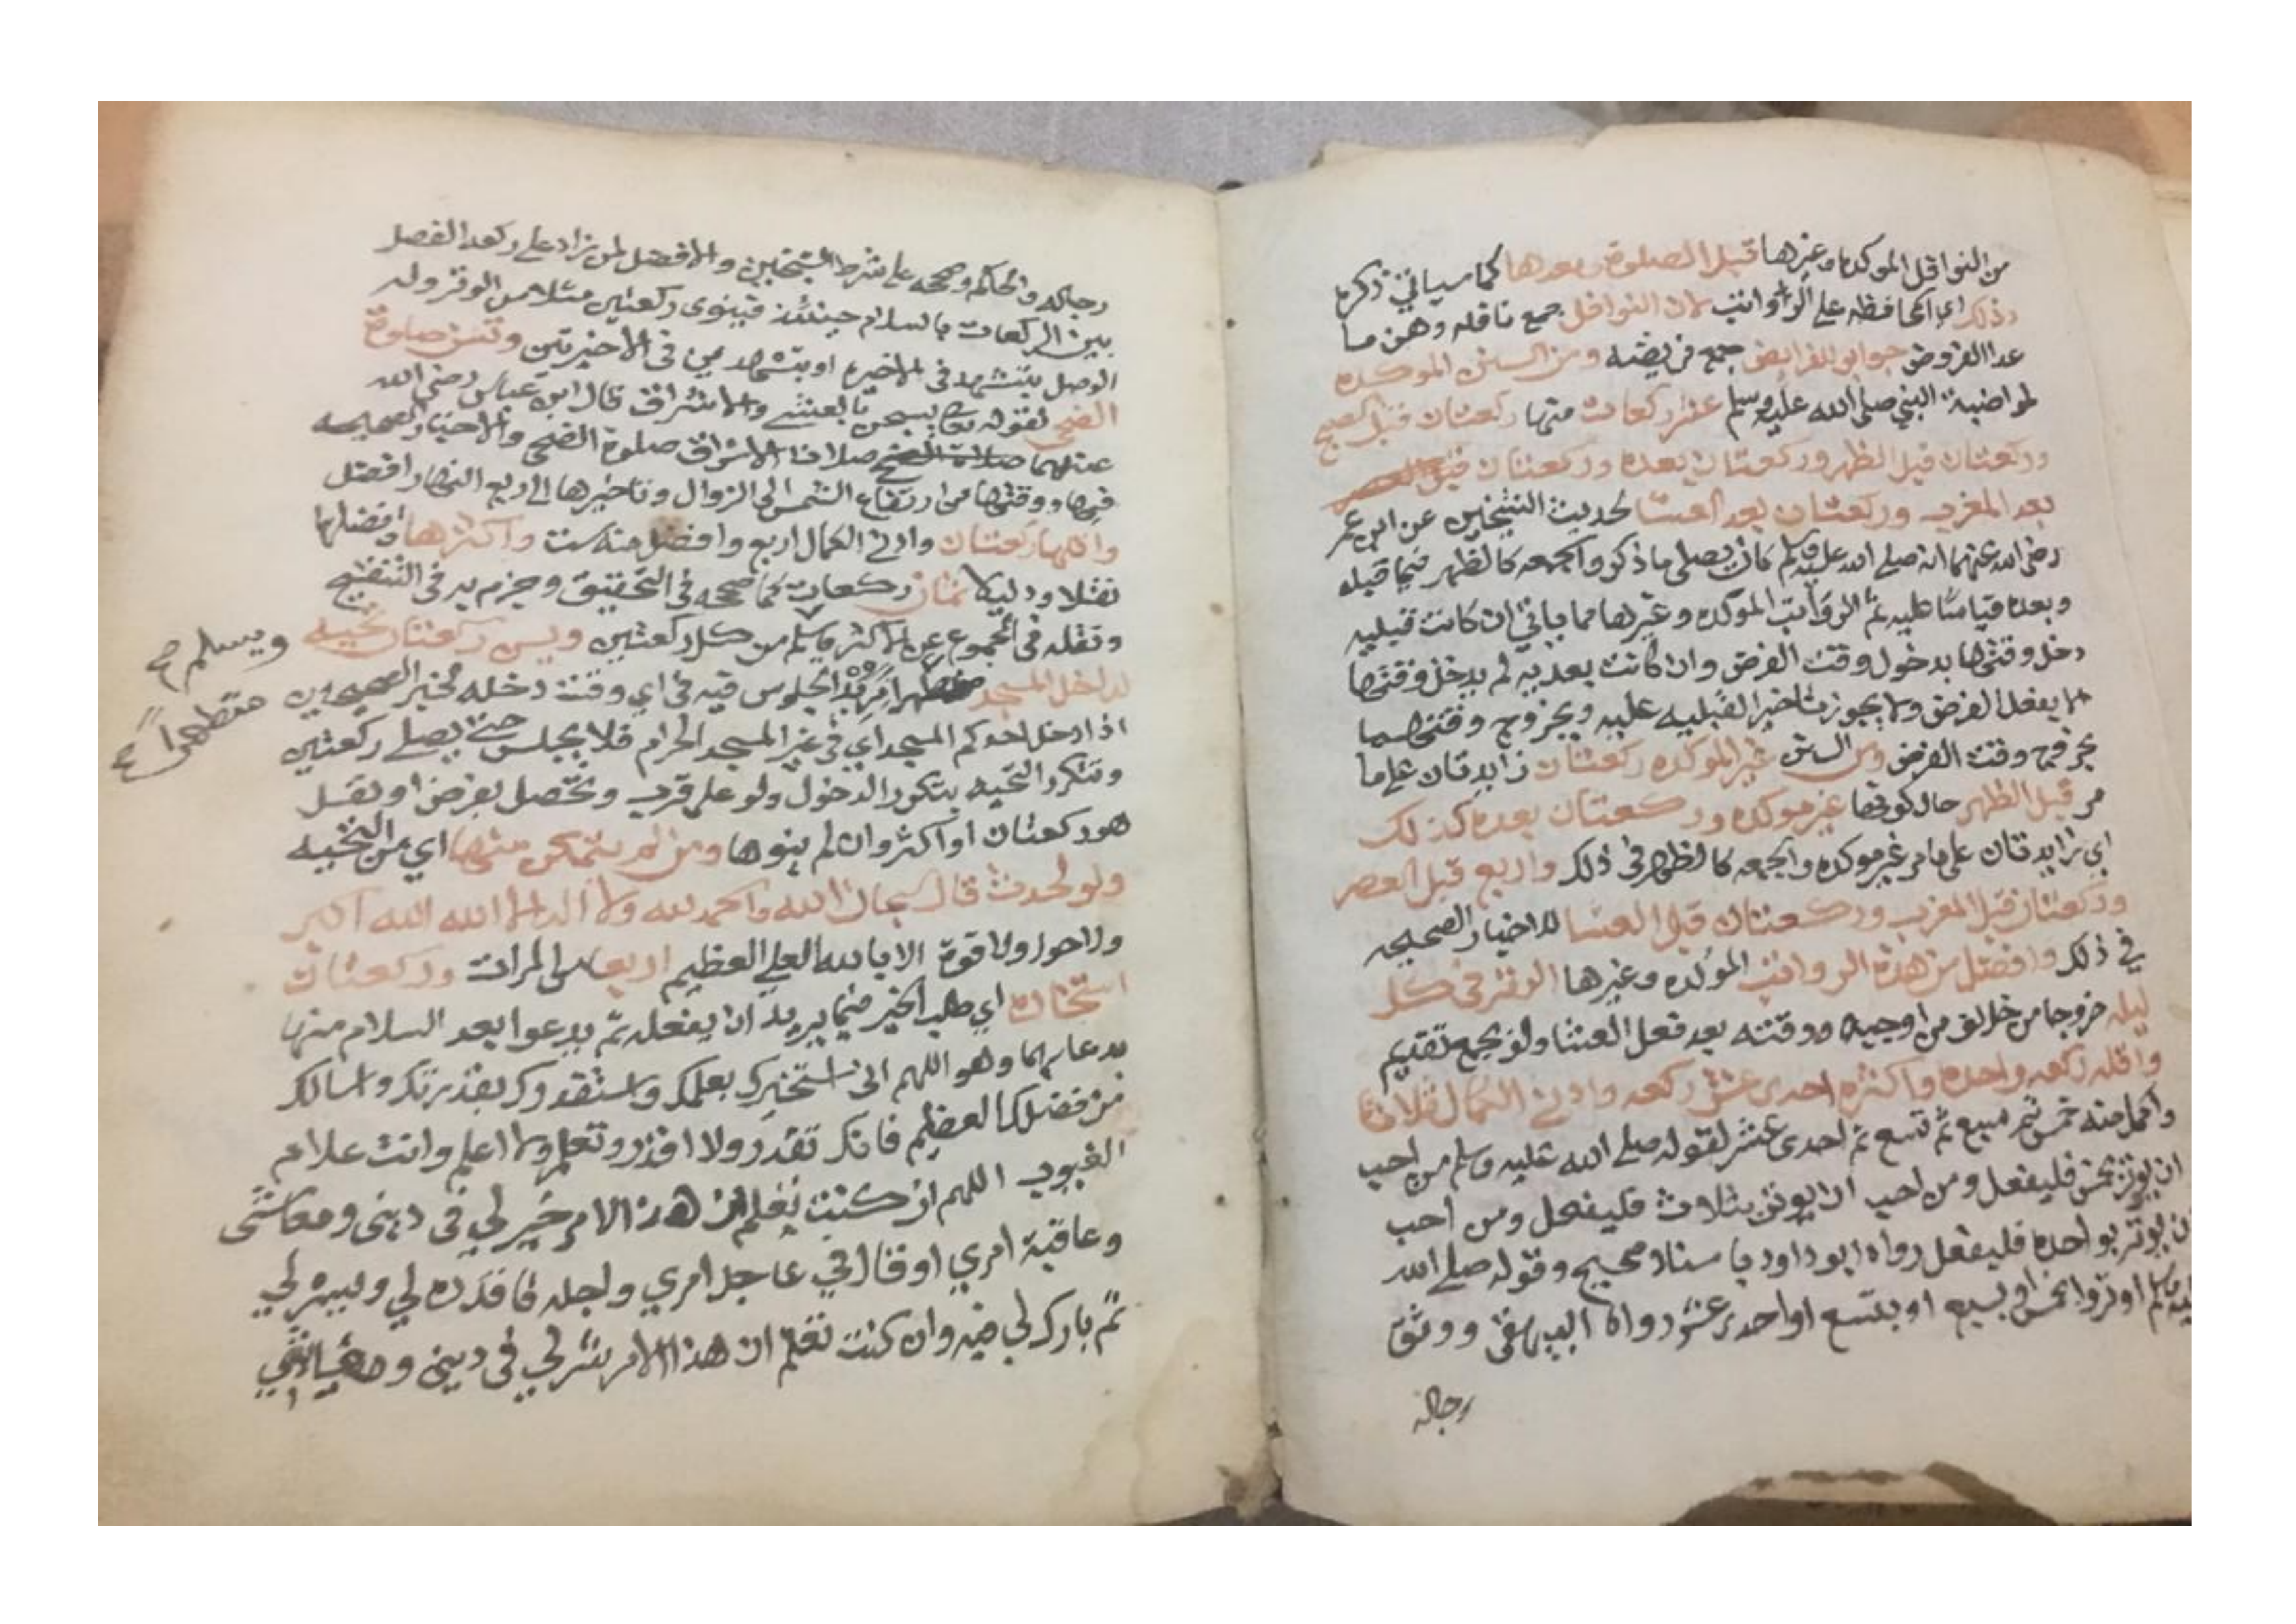 من النوافل الموكده وغيرها قبل الصلوة وبعدها كما سياتي ذكره
وذلك اي المحافظه على الرواتب لان النوافل جمع نافله وهن ما
عدا الفروض جوابر للفرايض جمع فريضه ومن السنن الموكده
لمواضبة النبي صلى الله عليه وسلم عشر ركعات منها ركعتان قبل الصبح
وركعتان قبل الظهر وركعتان بعده وركعتان
بعد المغرب وركعتان بعد العشا لحديث الشيخين عن ابن عمر
رضي الله عنهما انه صلى الله عليه وسلم كان يصلي ما ذكر والجمعه كالظهر فيما قبله
وبعده قياسا عليه ثم الرواتب الموكده وغيرها مما ياتي ان كانت قبليه
دخل وقتها بدخول وقت الفرض وان كانت بعديه لم يدخل وقتها
الا بفعل الفرض ولا يجوز تاخير القبليه عليه ويخروج وقتهما
بخروج وقت الفرض ومن السنن غير الموكده ركعتان زايدتان على ما
مر قبل الظهر حال كونها غير موكده وركعتان بعده كذلك
اي زايدتان على مامر غير موكده والجمعه كالظهر في ذلك واربع قبل العصر
وركعتان قبل المغرب وركعتان قبل العشا للاخبار الصحيحه
في ذلك وافضل من هذه الرواتب الموكده وغيرها الوتر في كل
ليله خروجا من خلاف من اوجبه ووقته بعد فعل العشا ولو بجمع تقديم
واقله ركعه واحده واكثره احدى عشر ركعه وادنى الكمال ثلاث
واكمل منه خمس ثم سبع ثم تسع ثم احدى عشر لقوله صلى الله عليه وسلم من احب
ان يوتر بخمس فليفعل ومن احب ان يوتر بثلاث فليفعل ومن احب
ان يوتر بواحده فليفعل رواه ابو داود باسناد صحيح وقوله صلى الله
عليه وسلم اوتروا بخمس او بسبع او بتسع او احدى عشر رواه البيهقي ووثق
رجاله
رجاله والحاكم وصححه على شرط الشيخين والافضل لمن زاد على ركعه الفصل
بين الركعات بالسلام حينئذ فينوى ركعتين مثلا من الوتر وله
الوصل بتشهد في الاخيره او بتشهدين في الاخيرتين وتسن صلوة
الضحى لقوله تعالى يسبحن بالعشي والاشراق قال ابن عباس رضي الله
عنهما صلاة الاشراق صلوة الضحى والاخبار الصحيحه
فيها ووقتها من ارتفاع الشمس الى الزوال وتاخيرها الى ربع النهار افضل
واقلها ركعتان وادنى الكمال اربع وافضل منه ست واكثرها وافضلها
نقلا ودليلا ثمان ركعات كما صححه في التحقيق وجزم به في التنقيح
ونقله في المجموع عن الاكثر ويسلم من كل ركعتين ويسن ركعتان تحية
ويسلم صح
لداخل المسجد يريد الجلوس فيه في اي وقت دخله لخبر الصحيحين
متطهرا صح
اذا دخل احدكم المسجد اي في غير المسجد الحرام فلا يجلس حتى يصلي ركعتين
وتتكرر التحيه بتكرر الدخول ولو على قرب وتحصل بفرض او نفل
هو ركعتان او اكثر وان لم ينوها ومن لم يتمكن منها اي من التحيه
ولو لحدث قال سبحان الله والحمد لله ولا اله الا الله الله اكبر
ولا حول ولا قوة الا بالله العلي العظيم اربعا من المرات وركعتان
استخاره اي طلب الخير فيما يريد ان يفعله ثم يدعوا بعد السلام منها
بدعايها وهو اللهم اني استخيرك بعلمك واستقدرك بقدرتك واسالك
من فضلك العظيم فانك تقدر ولا اقدر وتعلم ولا اعلم وانت علام
الغيوب اللهم ان كنت تعلم ان هذا الامر خير لي في ديني ومعاشي
وعاقبة امري او قال في عاجل امري واجله فاقدره لي ويسره لي
ثم بارك لي فيه وان كنت تعلم ان هذا الامر شر لي في ديني ومعاشي